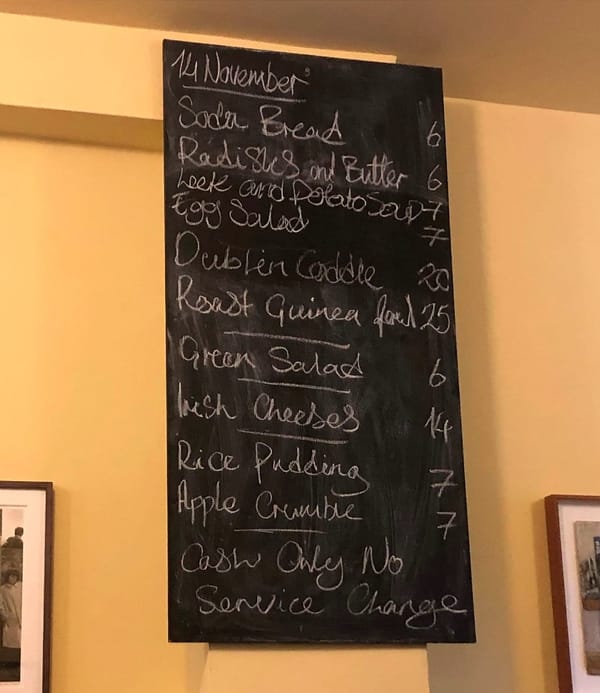 14 November
Soda Bread 6
Radishes and Butter 6
Leek and Potato Soup 7
Egg Salad 7
Dublin Coddle 20
Roast Guinea fowl 25
Green Salad 6
Irish Cheeses 14
Rice Pudding 7
Apple Crumble 7
Cash Only No
Service Charge